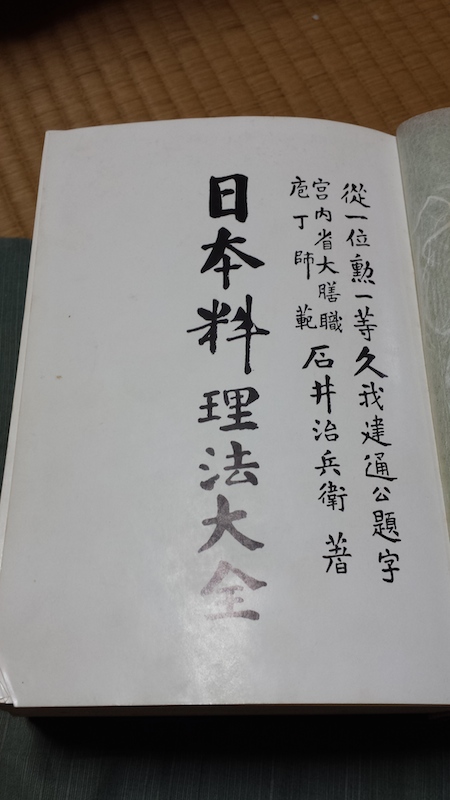 從一位勲一等久我建通公題字
宮内省大膳職
庖丁師範
石井治兵衛 著
日本料理法大全